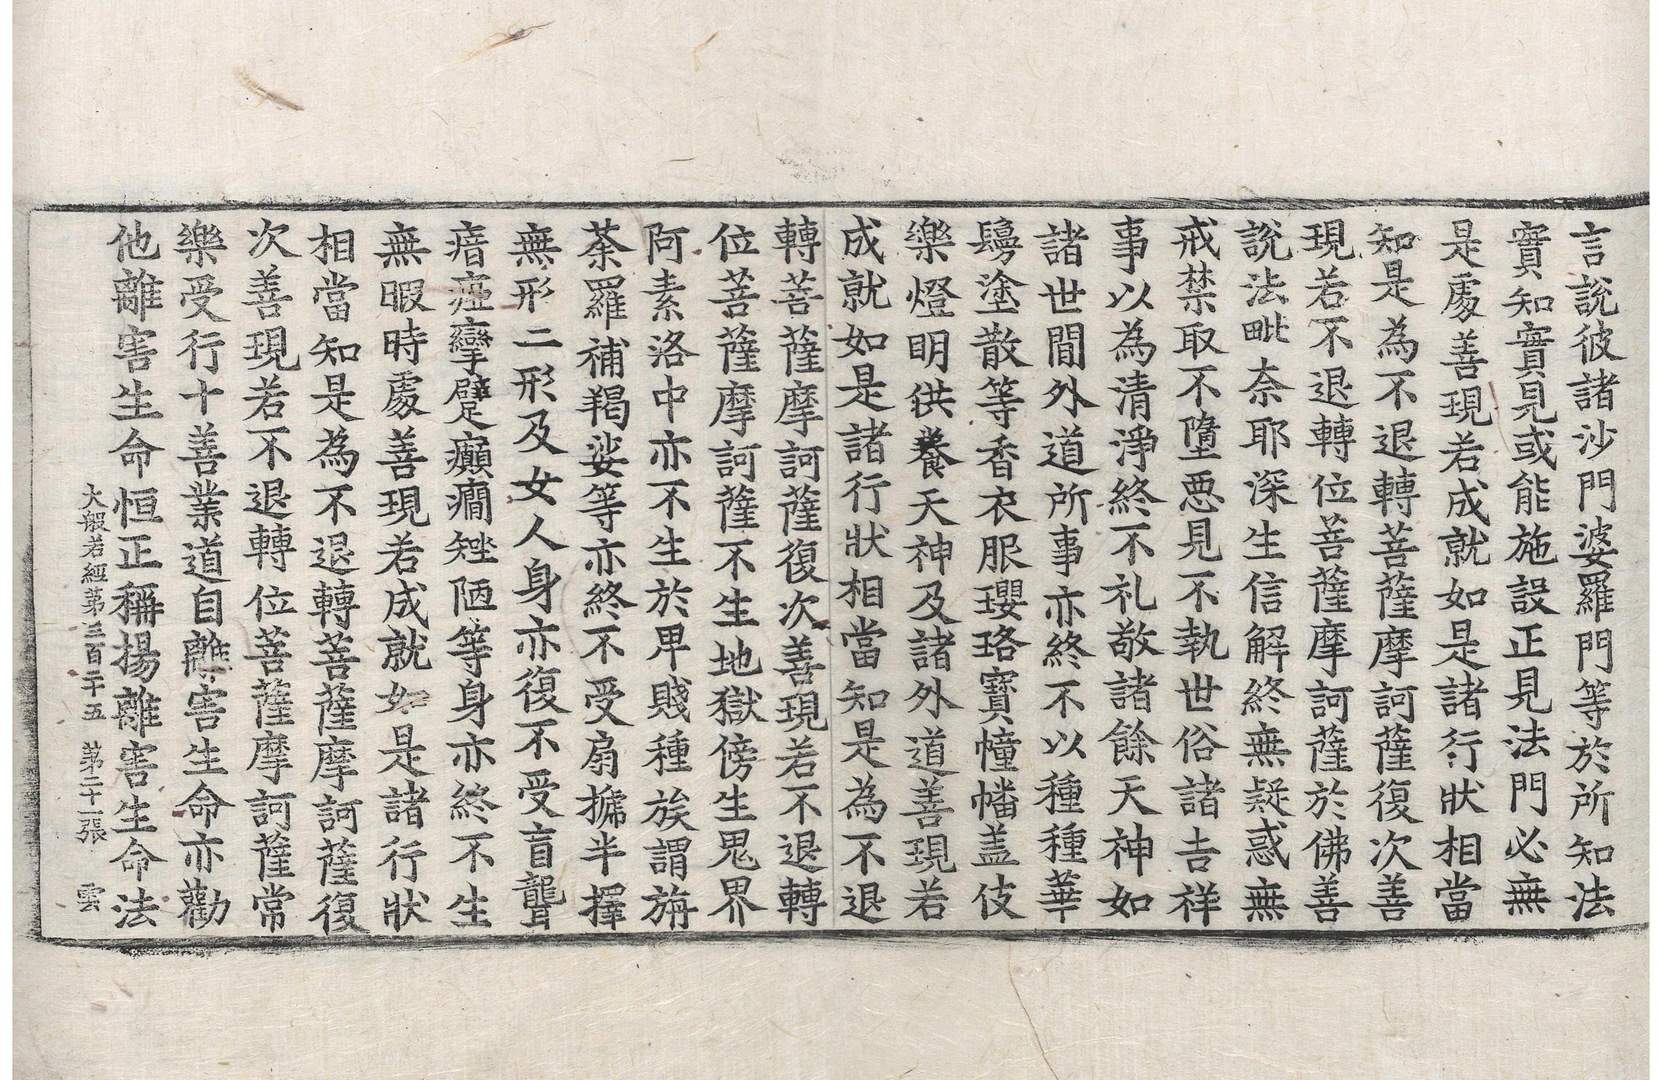 言說彼諸沙門婆羅門等於所知法
實知實見或能施設正見法門必無
是處善現若成就如是諸行狀相當
知是為不退轉菩薩摩訶薩復次善
現若不退轉位菩薩摩訶薩於佛善
說法毗奈耶深生信解終無疑惑無
戒禁取不墮惡見不執世俗諸吉祥
事以為清淨終不礼敬諸餘天神如
諸世間外道所事亦終不以種種華
鬘塗散等香衣服瓔珞寶幢幡盖伎
樂燈明供養天神及諸外道善現若
成就如是諸行狀相當知是為不退
轉菩薩摩訶薩復次善現若不退轉
位菩薩摩訶薩不生地獄傍生鬼界
阿素洛中亦不生於卑賤種族謂旃
荼羅補羯娑等亦終不受扇搋半擇
無形二形及女人身亦復不受盲聾
瘖瘂攣躄癲癎矬陋等身亦終不生
無暇時處善現若成就如是諸行狀
相當知是為不退轉菩薩摩訶薩復
次善現若不退轉位菩薩摩訶薩常
樂受行十善業道自離害生命亦勸
他離害生命恒正稱揚離害生命法
大般若經第三百二十五 第二十一張 雲